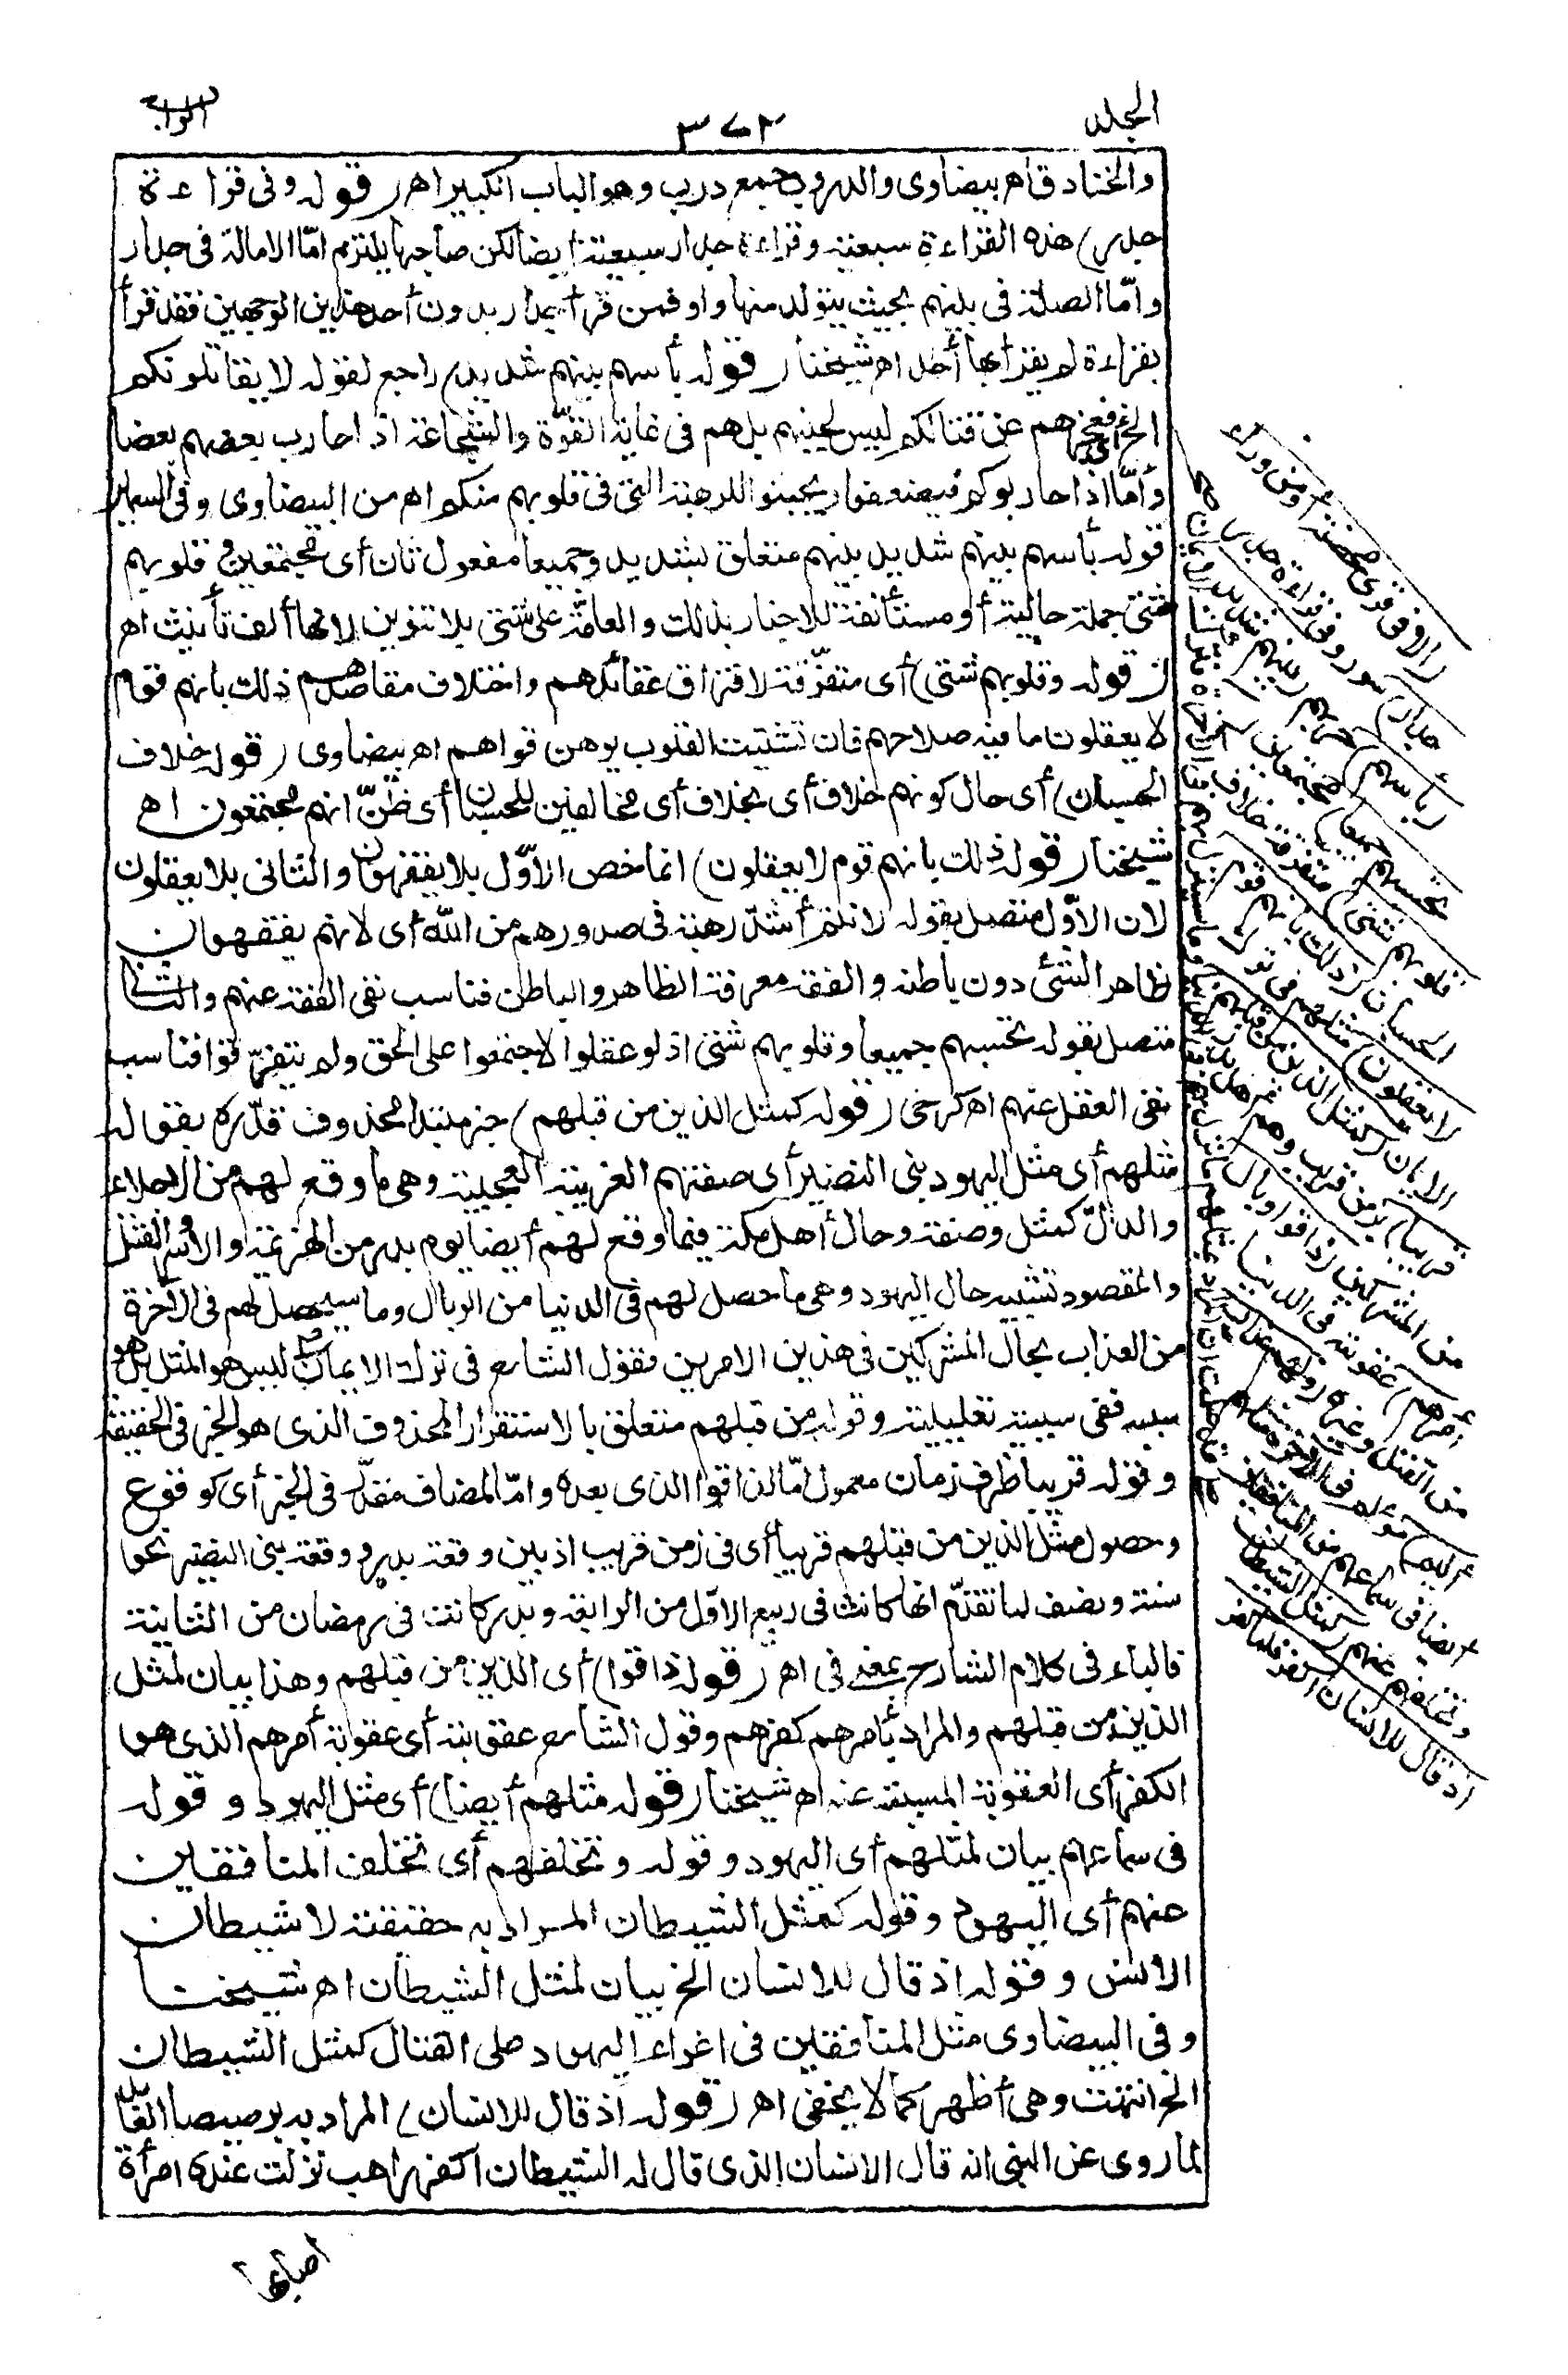 الجلد
٣٧٢
الرابع
والخنادق اهر بيضاوى والدروب جمع درب وهو الباب الكبير اهر (قوله وفى قراءة
جدر) هذه القراءة سبعية وقراءة جدار سبعية أيضا لكن صاحبها يلتزم امّا الامالة فى جدار
وامّا الصلة فى بينهم بحيث يتولد منها واو فمن قرأ جدار بدون أحد هذين الوجهين فقد قرأ
بقراءة لم يقرأ بها أحد اهر شيخنا (قوله بأسهم بينهم شديد) راجع لقوله لا يقاتلونكم
الخ أى فعجزهم عن قتالكم ليس لجبنهم بل هم فى غاية القوّة والشجاعة اذا حارب بعضهم بعضا
وأمّا اذا حاربوكم فيضعفوا ويجبنوا للرهبة التى فى قلوبهم منكم اهر من البيضاوى وفى السمين
قوله بأسهم بينهم شديد بينهم متعلق بشديد وجميعا مفعول ثان أى مجتمعين وقلوبهم
شتى جملة حالية أو مستأنفة للاخبار بذلك والعامّة على شتى بلا تنوين لانها ألف تأنيث اهر
(قوله وقلوبهم شتى) أى متفرّقة لافتراق عقائدهم واختلاف مقاصدهم ذلك بانهم قوم
لا يعقلون ما فيه صلاحهم فان تشتيت القلوب يوهن قواهم اهر بيضاوى (قوله خلاف
الحسبان) أى حال كونهم خلاف أى بخلاف أى مخالفين للحسبان أى ظنّ انهم مجتمعون اهر
شيخنا (قوله ذلك بانهم قوم لا يعقلون) انما خص الاوّل بلا يفقهون والثانى بلا يعقلون
لان الاوّل متصل بقوله لانتم أشدّ رهبة فى صدورهم من الله أى لانهم يفقهون
ظاهر الشئ دون باطنه والفقه معرفة الظاهر والباطن فناسب نفى الفقه عنهم والثانى
متصل بقوله تحسبهم جميعا وقلوبهم شتى اذ لو عقلوا لاجتمعوا على الحق ولم يتفرّقوا فناسب
نفى العقل عنهم اهر كرخى (قوله كمثل الذين من قبلهم) خبر مبتدا محذوف قدّره بقوله
مثلهم أى مثل اليهود بنى النضير أى صفتهم الغريبة العجيبة وهى ما وقع لهم من الاجلاء
والذلّ كمثل وصفة وحال أهل مكة فيما وقع لهم أيضا يوم بدر من الهزيمة والأسر والقتل
والمقصود تشبيه حال اليهود وهى ما حصل لهم فى الدنيا من الوبال وما سيحصل لهم فى الآخرة
من العذاب بحال المشركين فى هذين الامرين فقول الشارح فى ترك الايمان ليس هو المثل بل هو
سببه ففى سببية تعليلية وقوله من قبلهم متعلق بالاستقرار المحذوف الذى هو الخبر فى الحقيقة
وقوله قريبا ظرف زمان معمول امّا لذاقوا الذى بعده وامّا لمضاف مقدّر فى الخبر أى كوقوع
وحصول مثل الذين من قبلهم قريبا أى فى زمن قريب اذ بين وقعة بدر ووقعة بنى النضير نحو
سنة ونصف لما تقدّم انها كانت فى ربيع الاوّل من الرابعة وبدر كانت فى رمضان من الثانية
فالباء فى كلام الشارح بمعنى فى اهر (قوله ذاقوا) أى الذين من قبلهم وهذا بيان لمثل
الذين من قبلهم والمراد بأمرهم كفرهم وقول الشارح عقوبته أى عقوبة أمرهم الذى هو
الكفر أى العقوبة المسببة عنه اهر شيخنا (قوله مثلهم أيضا) أى مثل اليهود وقوله
فى سماعهم بيان لمثلهم أى اليهود وقوله وتخلفهم أى تخلف المنافقين
عنهم أى اليهود وقوله كمثل الشيطان المراد به حقيقته لا شيطان
الانس وقوله اذ قال للانسان الخ بيان لمثل الشيطان اهر شيخنا
وفى البيضاوى مثل المنافقين فى اغراء اليهود على القتال كمثل الشيطان
الخ انتهت وهى أظهر كما لا يخفى اهر (قوله اذ قال للانسان) المراد به برصيصا العابد
لما روى عن النبى انه قال الانسان الذى قال له الشيطان اكفر راهب نزلت عنده امرأة
أصابها
(الا فى قرى محصنة أو من وراء
جدار) سور وفى قراءة جدر
(بأسهم) حربهم (بينهم شديد
تحسبهم جميعا) مجتمعين
(وقلوبهم شتى) متفرقة خلاف
الحسبان (ذلك بانهم قوم
لا يعقلون) مثلهم فى ترك
الايمان (كمثل الذين من قبلهم
قريبا) بزمن قريب وهم أهل بدر
من المشركين (ذاقوا وبال
أمرهم) عقوبته فى الدنيا
من القتل وغيره (ولهم عذاب
أليم) مؤلم فى الآخرة مثلهم
أيضا فى سماعهم من المنافقين
وتخلفهم عنهم (كمثل الشيطان
اذ قال للانسان اكفر فلما كفر